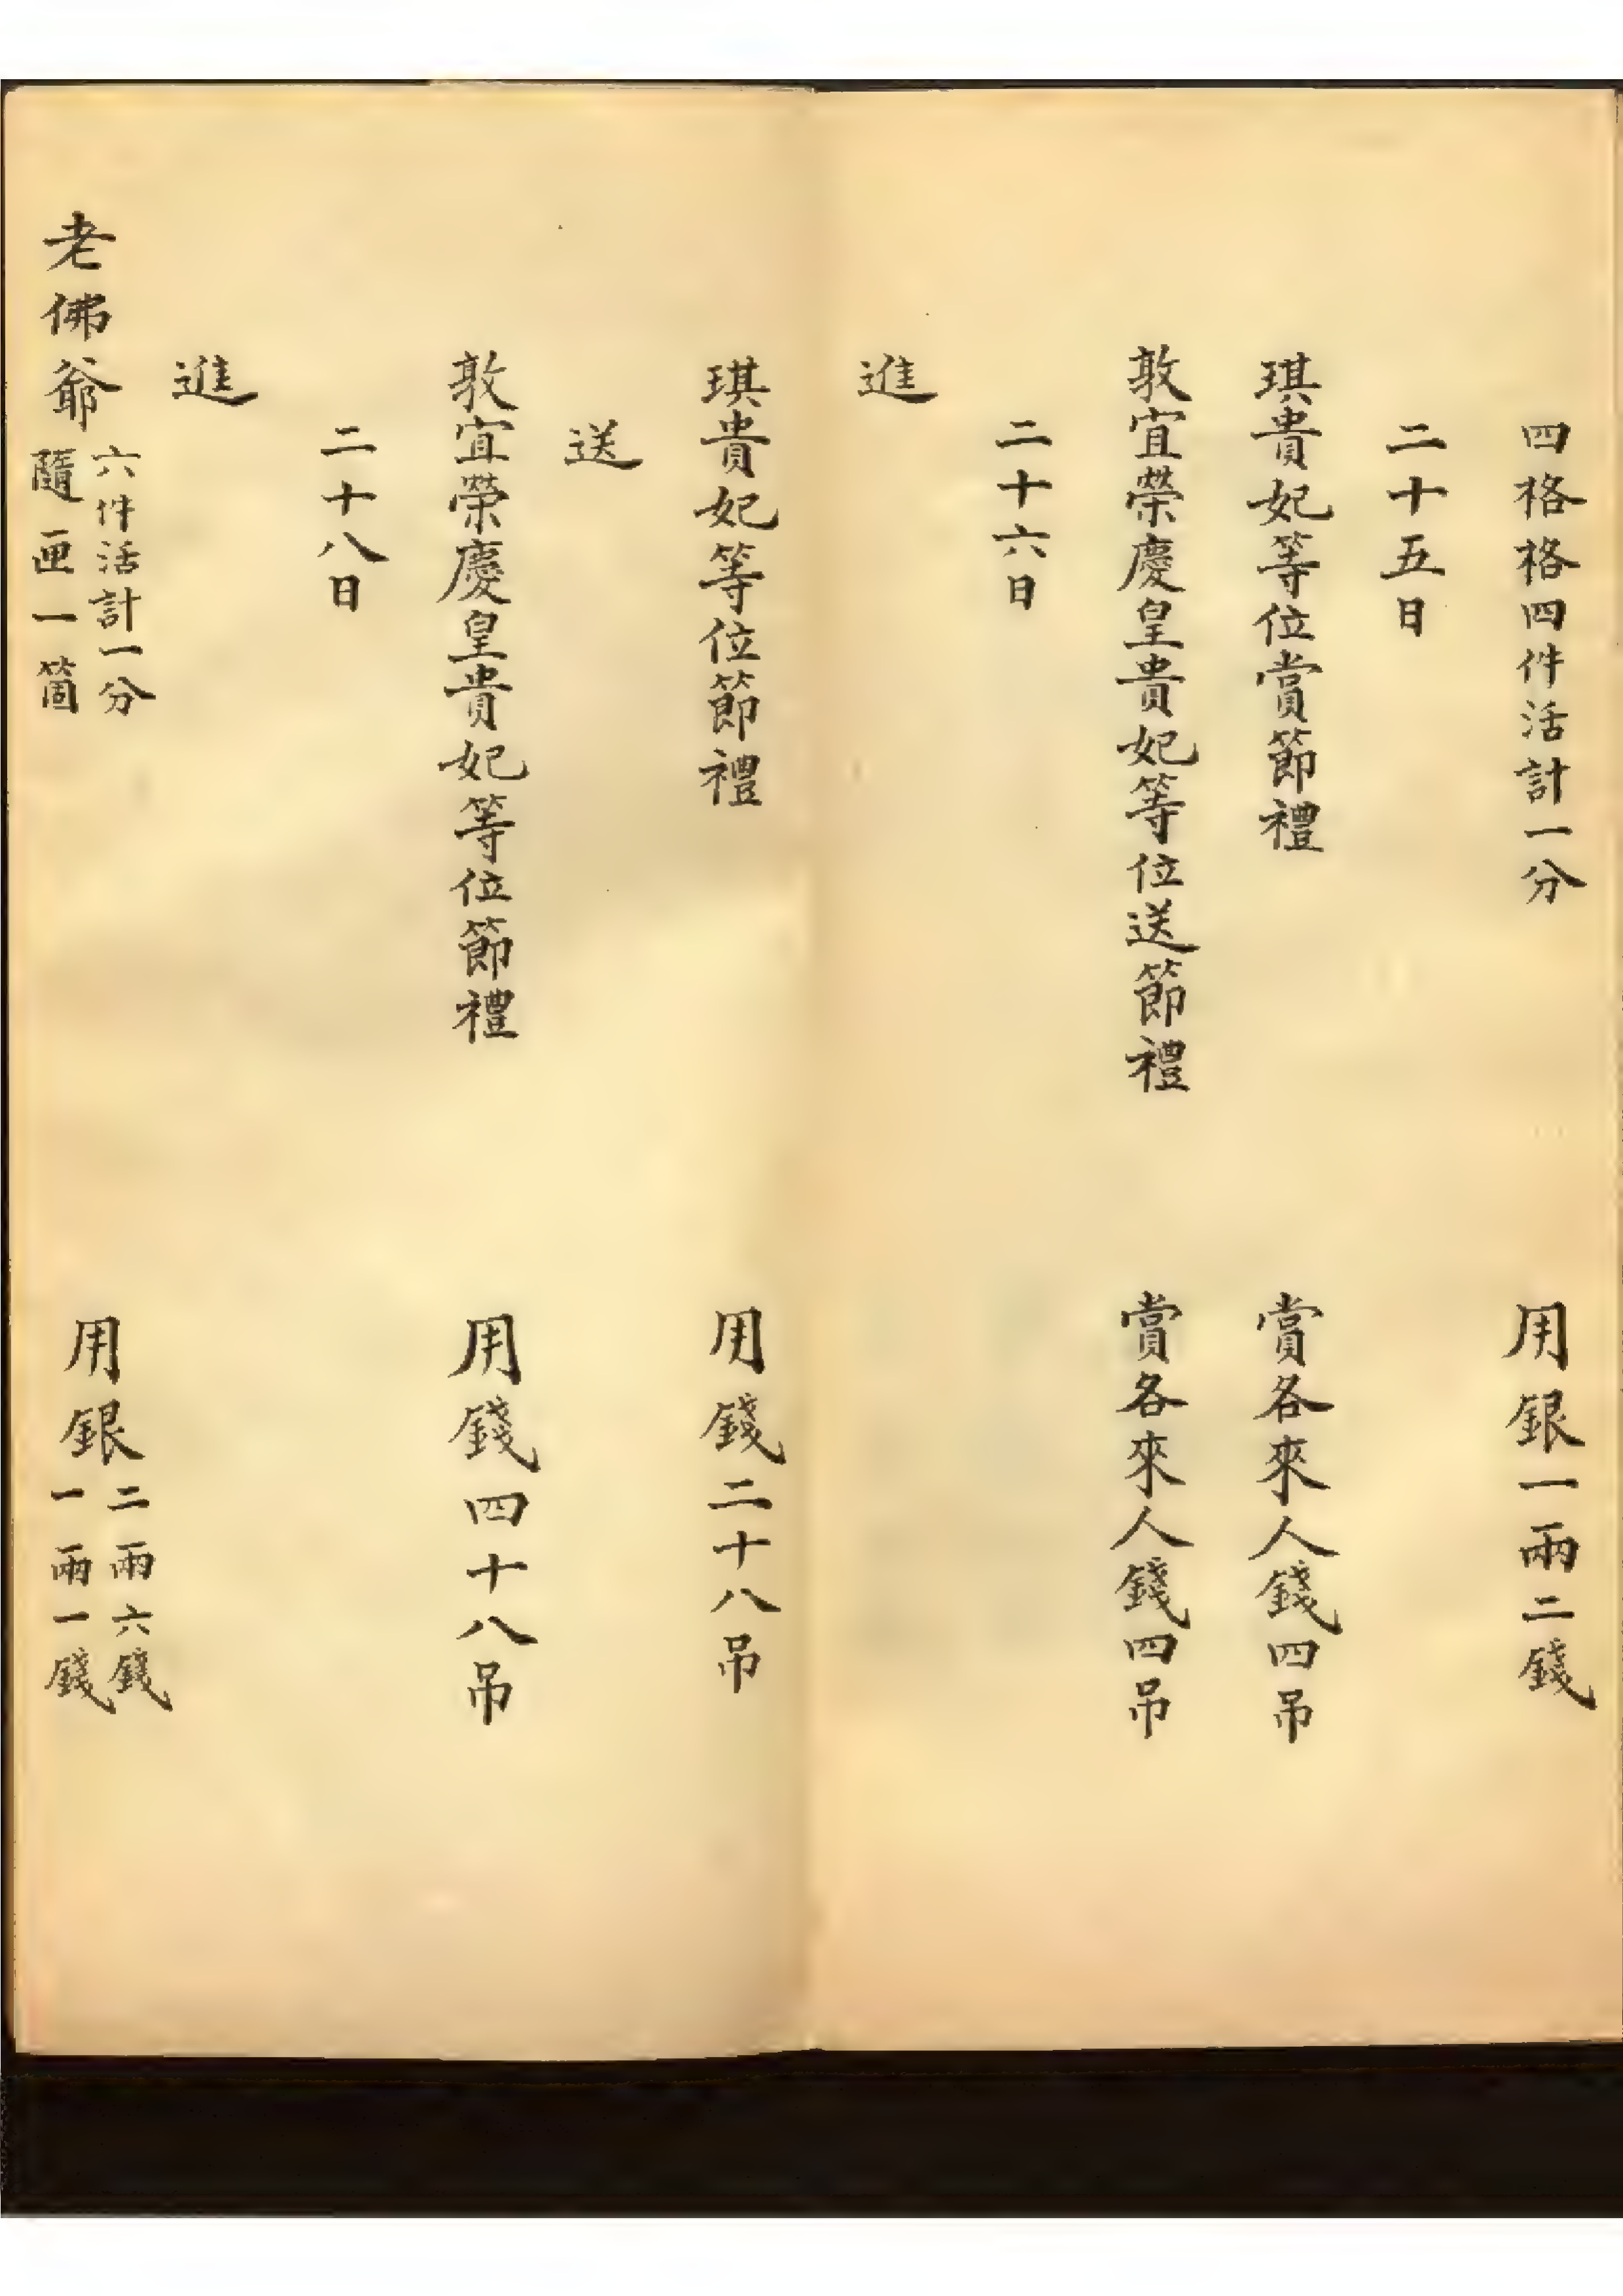 四格格四件活計一分 用銀一兩二錢
二十五日
琪貴妃等位賞節禮 賞各來人錢四吊
敦宜榮慶皇貴妃等位送節禮 賞各來人錢四吊
二十六日
進
琪貴妃等位節禮 用錢二十八吊
送
敦宜榮慶皇貴妃等位節禮 用錢四十八吊
二十八日
進
老佛爺 六件活計一分 用銀 二兩六錢
隨匣一箇 一兩一錢